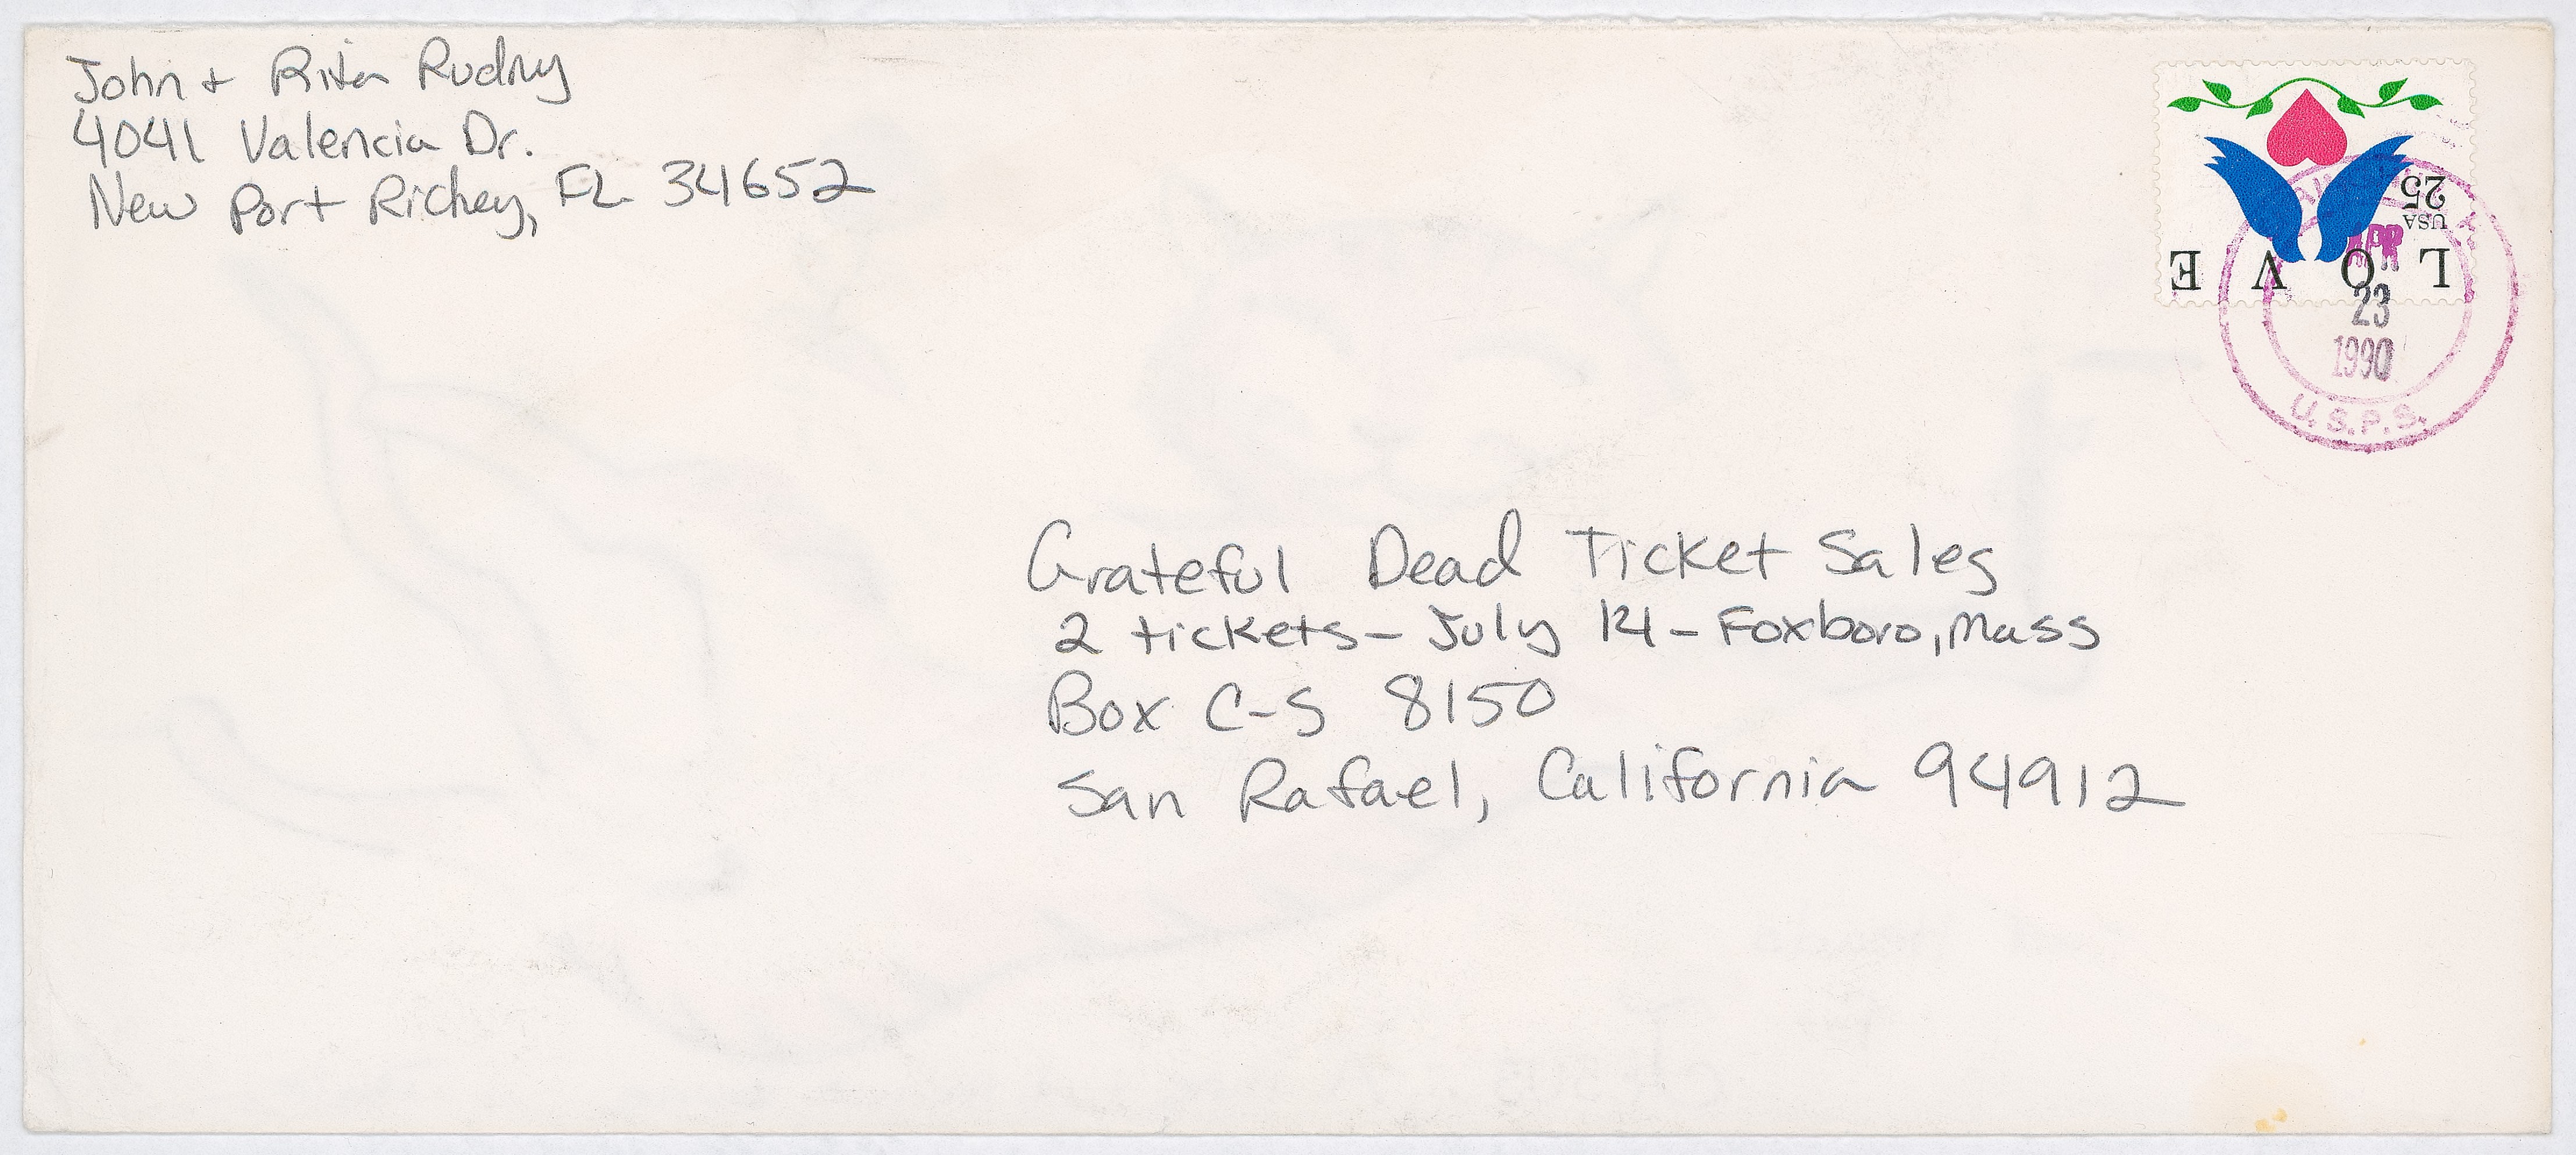 John + Rita Rudny
4041 Valencia Dr.
New Port Richey, FL 34652
25
USA
LOVE
APR
23
1990
U.S.P.S.
Grateful Dead Ticket Sales
2 tickets - July 14 - Foxboro, Mass
Box C-S 8150
San Rafael, California 94912